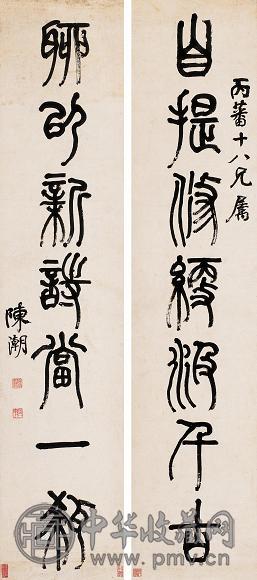 丙蕃十八兄屬
自提修綆汲千古
聊以新詩當一
陳潮
中华收藏网
www.pmv.cn